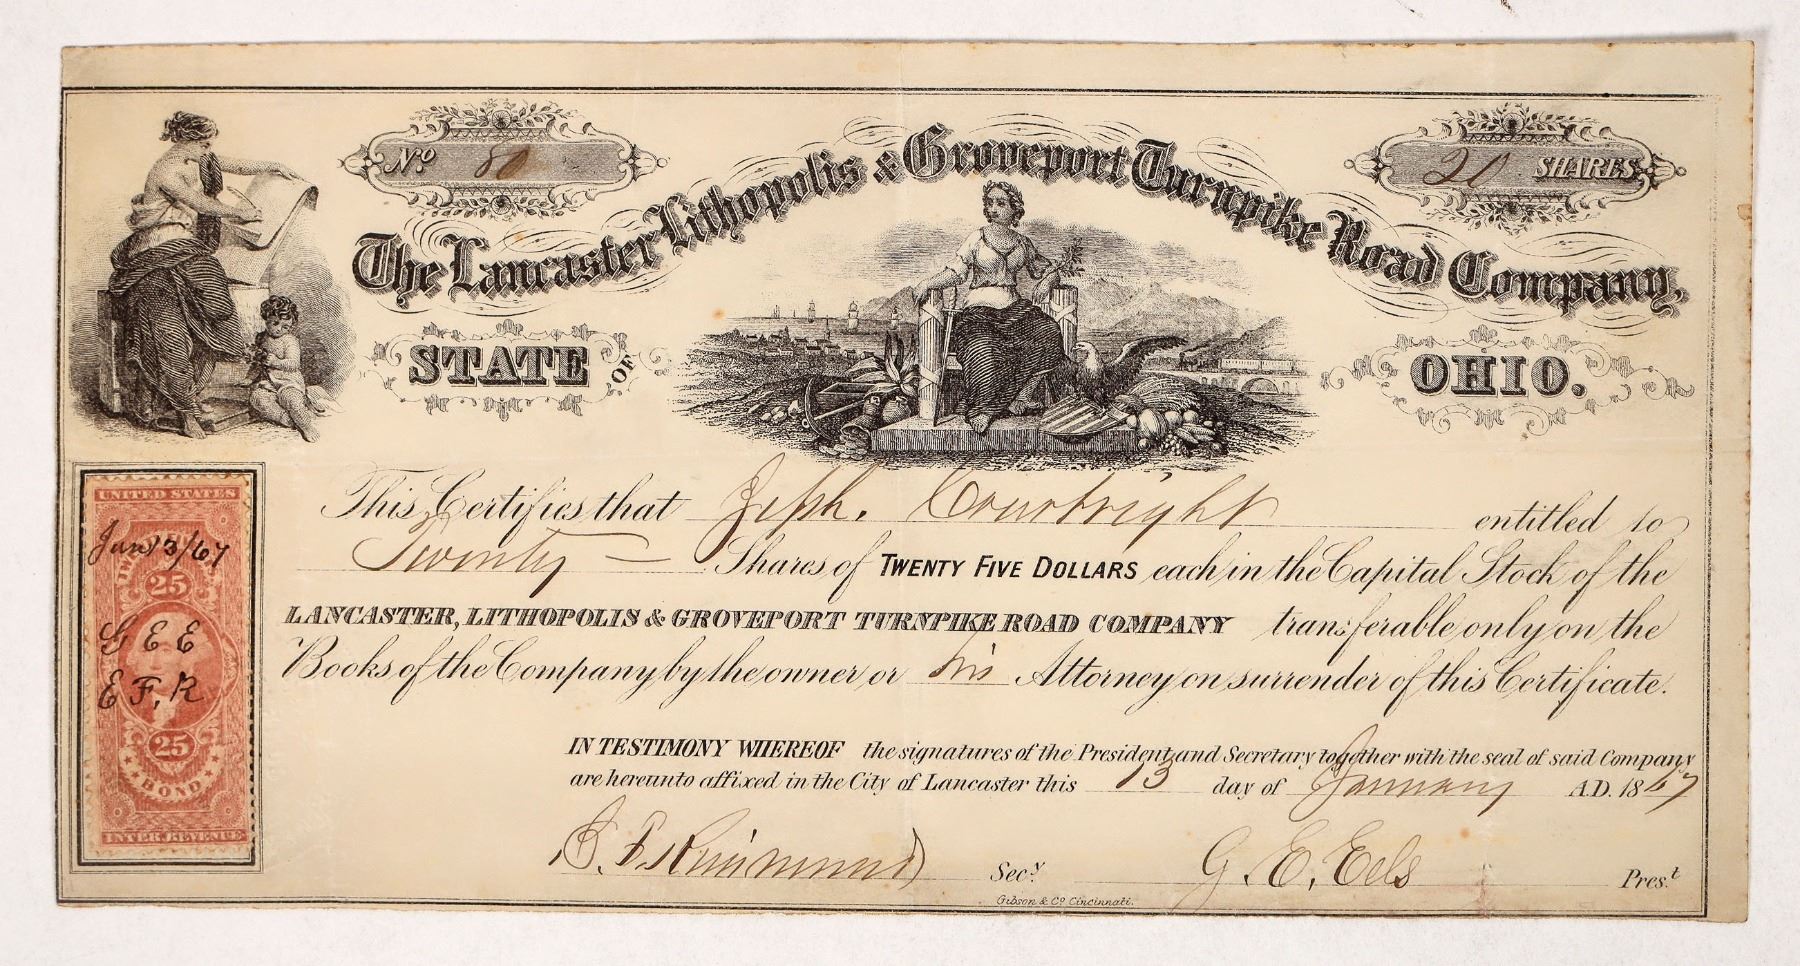 No 80
20 SHARES
The Lancaster Lithopolis & Groveport Turnpike Road Company,
STATE OF OHIO.
This Certifies that Jessh. Courtright entitled to
Twenty Shares of TWENTY FIVE DOLLARS each in the Capital Stock of the
LANCASTER, LITHOPOLIS & GROVEPORT TURNPIKE ROAD COMPANY transferable only on the
Books of the Company by the owner or his Attorney on surrender of this Certificate.
IN TESTIMONY WHEREOF the signatures of the President and Secretary together with the seal of said Company
are hereunto affixed in the City of Lancaster this 13 day of January A.D. 1867
Secy. G. E. Eels Prest
Gibson & Co Cincinnati.
UNITED STATES
Jan 13/67
25
G E E
E F. R
25
BOND
INTER. REVENUE